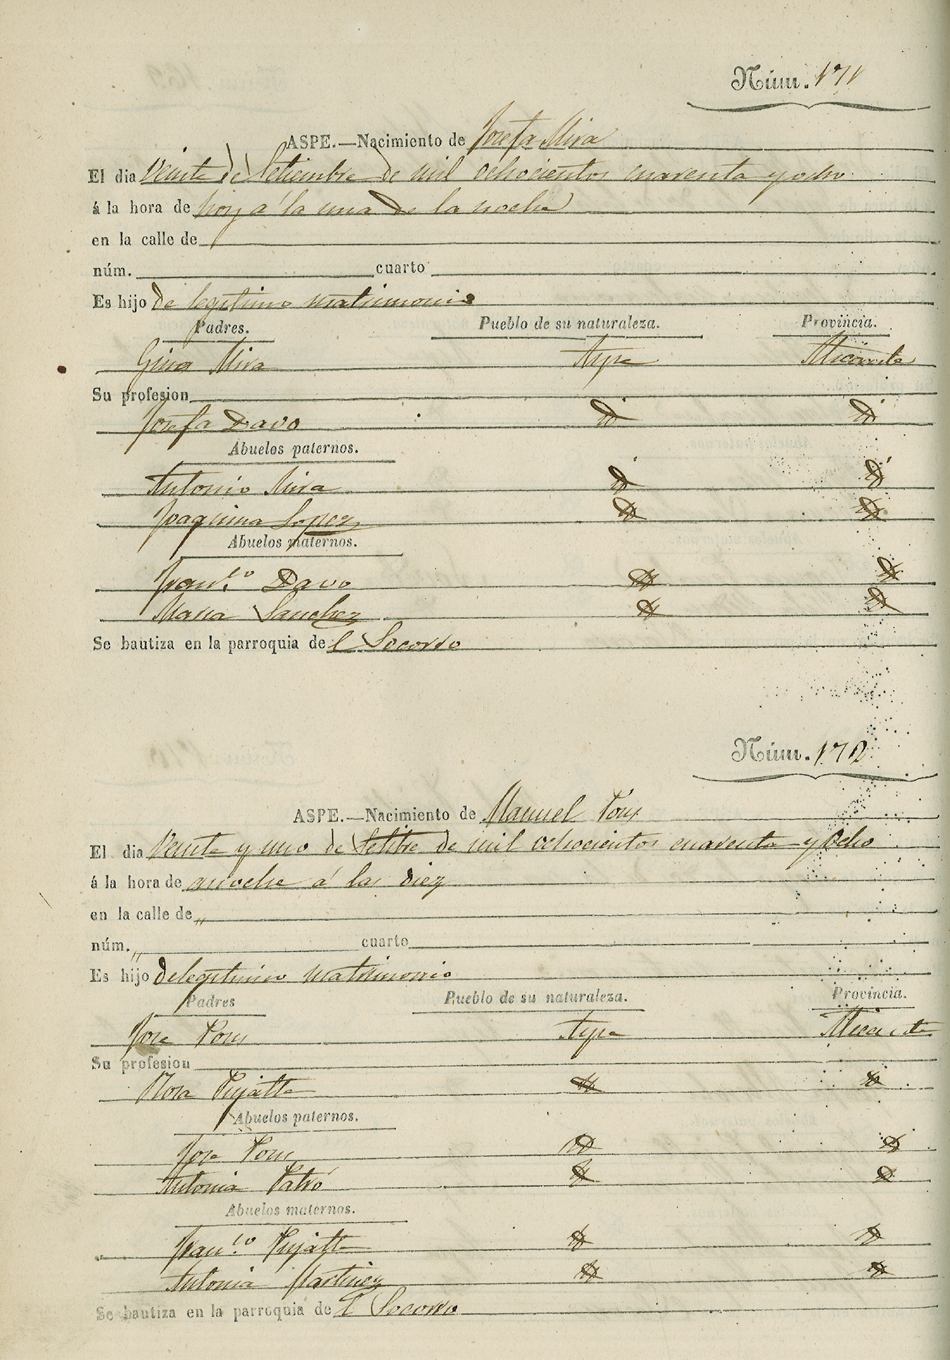 Núm. 171
ASPE.—Nacimiento de Josefa Mira
El dia Veinte de Setiembre de mil ochocientos cuarenta y ocho
á la hora de hoy a la una de la noche
en la calle de
núm. cuarto
Es hijo de legitimo matrimonio
Padres. Pueblo de su naturaleza. Provincia.
Mira Aspe Alicante
Su profesion
Josefa Davo id id
Abuelos paternos.
Antonio Mira id id
Joaquina Lopez id id
Abuelos maternos.
Franco Davo id id
Maria Sanchez id id
Se bautiza en la parroquia de l Socorro
Núm. 172
ASPE.—Nacimiento de Manuel Pons
El dia Veinte y uno de Setbre de mil ochocientos cuarenta y Ocho
á la hora de anoche á las diez
en la calle de „
núm. „ cuarto
Es hijo de legitimo matrimonio
Padres Pueblo de su naturaleza. Provincia.
Jose Pons Aspe Alicante
Su profesion
Rosa Pujalte id id
Abuelos paternos.
Jose Pons id id
Antonia id id
Abuelos maternos.
Franco Pujalte id id
Antonia Martinez id id
Se bautiza en la parroquia de l Socorro